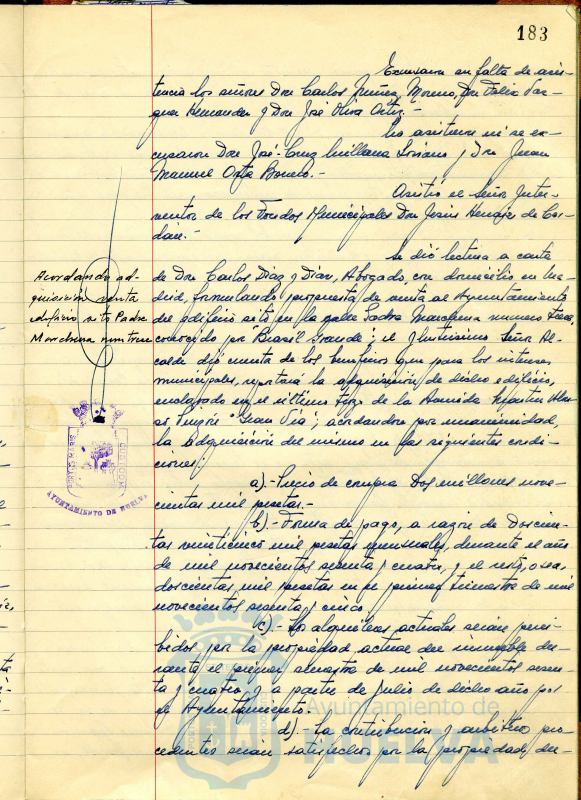 183
Excusaron su falta de asis-
tencia los señores Don Carlos Núñez Moreno, Don Félix Vaz-
quez Hernandez y Don José Oliva Ortiz.-
No asistieron ni se ex-
cusaron Don José-Cruz Soriano y Don Juan
Manuel Orta Borrero.-
Asistió el Señor Inter-
ventor de los Fondos Municipales Don Jesús de
Se dió lectura a carta
de Don Carlos Diaz y Diaz, Abogado, con domicilio en Ma-
drid, formulando propuesta de venta al Ayuntamiento
del edificio sito en la calle Padre Marchena numero trece,
conocido por "Brasil Grande"; el Ilustrisimo Señor Al-
calde dió cuenta de los beneficios que para los intereses
municipales, reportaria la adquisición de dicho edificio,
enclavado en el último trozo de la Avenida Martin Alon-
so Pinzón "Gran Via"; acordandose por unanimidad,
la adquisición del mismo en las siguientes condi-
ciones:
a).- Precio de compra Dos millones nove-
cientas mil pesetas.-
b).- Forma de pago, a razón de Doscien-
tas veinticinco mil pesetas mensuales, durante el año
de mil novecientos sesenta y cuatro, y el resto, o sea,
doscientas mil pesetas en el primer trimestre de mil
novecientos sesenta y cinco.
c).- Los alquileres actuales serán perci-
bidos por la propiedad actual del inmueble du-
rante el primer semestre de mil novecientos sesen-
ta y cuatro y a partir de julio de dicho año por
el Ayuntamiento.
d).- La contribucion y arbitrio pro-
cedentes seran satisfechos por la propiedad, du-
Acordando ad-
quisición venta
edificio sito Padre
Marchena num trece
PORTUS MARIS CUSTODIA
AYUNTAMIENTO DE HUELVA
Ayuntamiento de
HUELVA